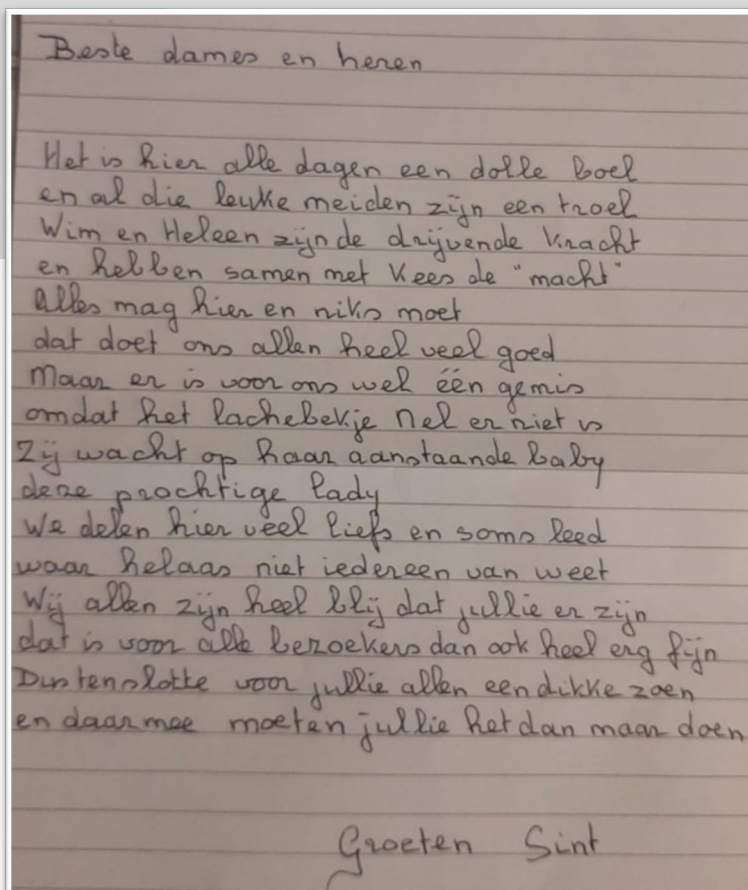 Beste dames en heren
Het is hier alle dagen een dolle boel
en al die leuke meiden zijn een troel
Wim en Heleen zijn de drijvende kracht
en hebben samen met Kees de "macht"
alles mag hier en niks moet
dat doet ons allen heel veel goed
Maar er is voor ons wel één gemis
omdat het lachebekje Nel er niet is
Zij wacht op haar aanstaande baby
deze prachtige lady
We delen hier veel liefs en soms leed
waar helaas niet iedereen van weet
Wij allen zijn heel blij dat jullie er zijn
dat is voor alle bezoekers dan ook heel erg fijn
Dus tenslotte voor jullie allen een dikke zoen
en daarmee moeten jullie het dan maar doen
Groeten Sint